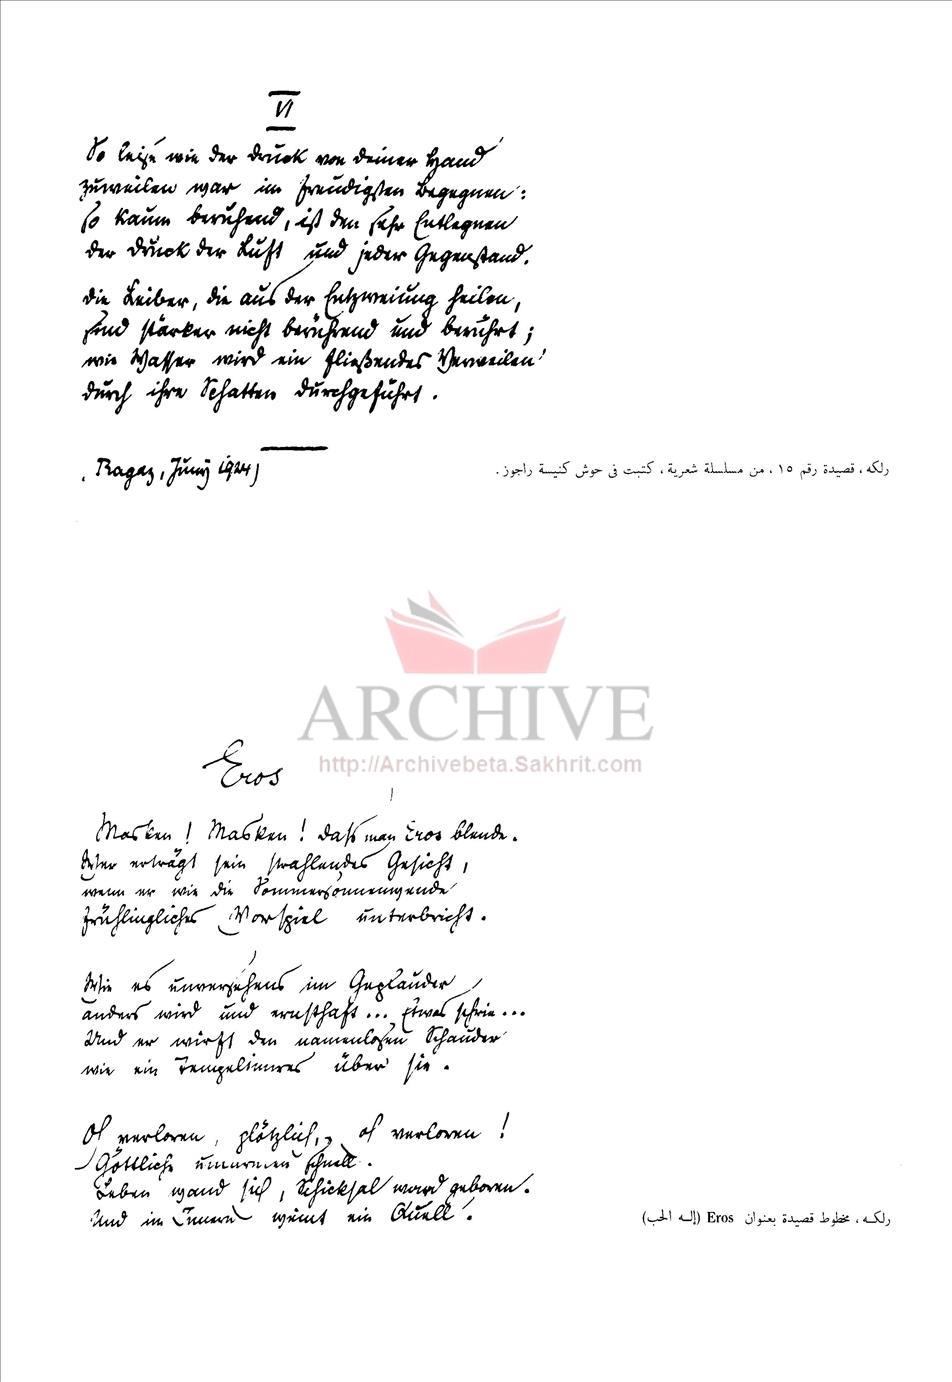 VI
So leise wie der Druck von deiner Hand
zuweilen war im freudigsten Begegnen:
so kaum beruhend, ist den sehr Entlegnen
der Druck der Luft und jeder Gegenstand.
Die Leiber, die aus der Entzweiung heilen,
sind stärker nicht berührend und berührt;
wie Wasser wird ein fließendes Verweilen
durch ihre Schatten durchgeführt.
(Ragaz, Juny 1924)
رلكه ، قصيدة رقم ١٥ ، من مسلسلة شعرية ، كتبت فى حوش كنيسة راجوز .
ARCHIVE
http://Archivebeta.Sakhrit.com
Eros
Masken! Masken! Dass man Eros blende.
Wer erträgt sein strahlendes Gesicht,
wenn er wie die Sommersonnenwende
frühlingliches Vorspiel unterbricht.
Wie es unversehens im Geplauder
anders wird und ernsthaft... Etwas schrie...
Und er wirft den namenlosen Schauder
wie ein Tempelinnres über sie.
Oh verloren, plötzlich, oh verloren!
Göttliche umarmen schnell.
Leben wand sich, Schicksal ward geboren.
Und im Innern weint ein Quell.
رلكـه ، مخطوط قصيدة بعنوان Eros (إلـه الحب)